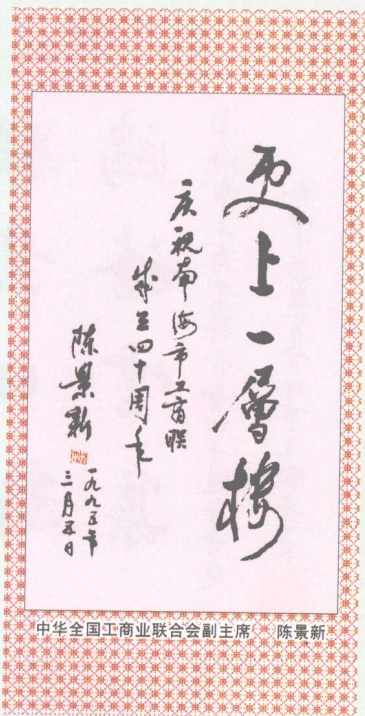 更上一層樓
庆祝南海市工商联
成立四十周年
陈景新
一九九五年
三月五日
中华全国工商业联合会副主席 陈景新